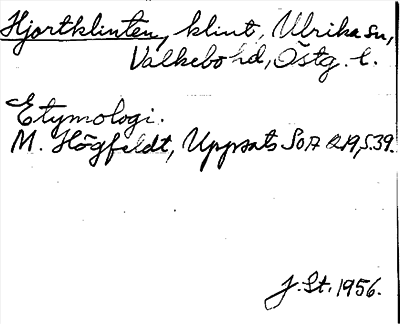 Hjortklinten, klint, Ulrika sn,
Valkebo hd, Östg. l.
Etymologi.
M. Högfeldt, Uppsats SOA Q19, s. 39.
J. St. 1956.